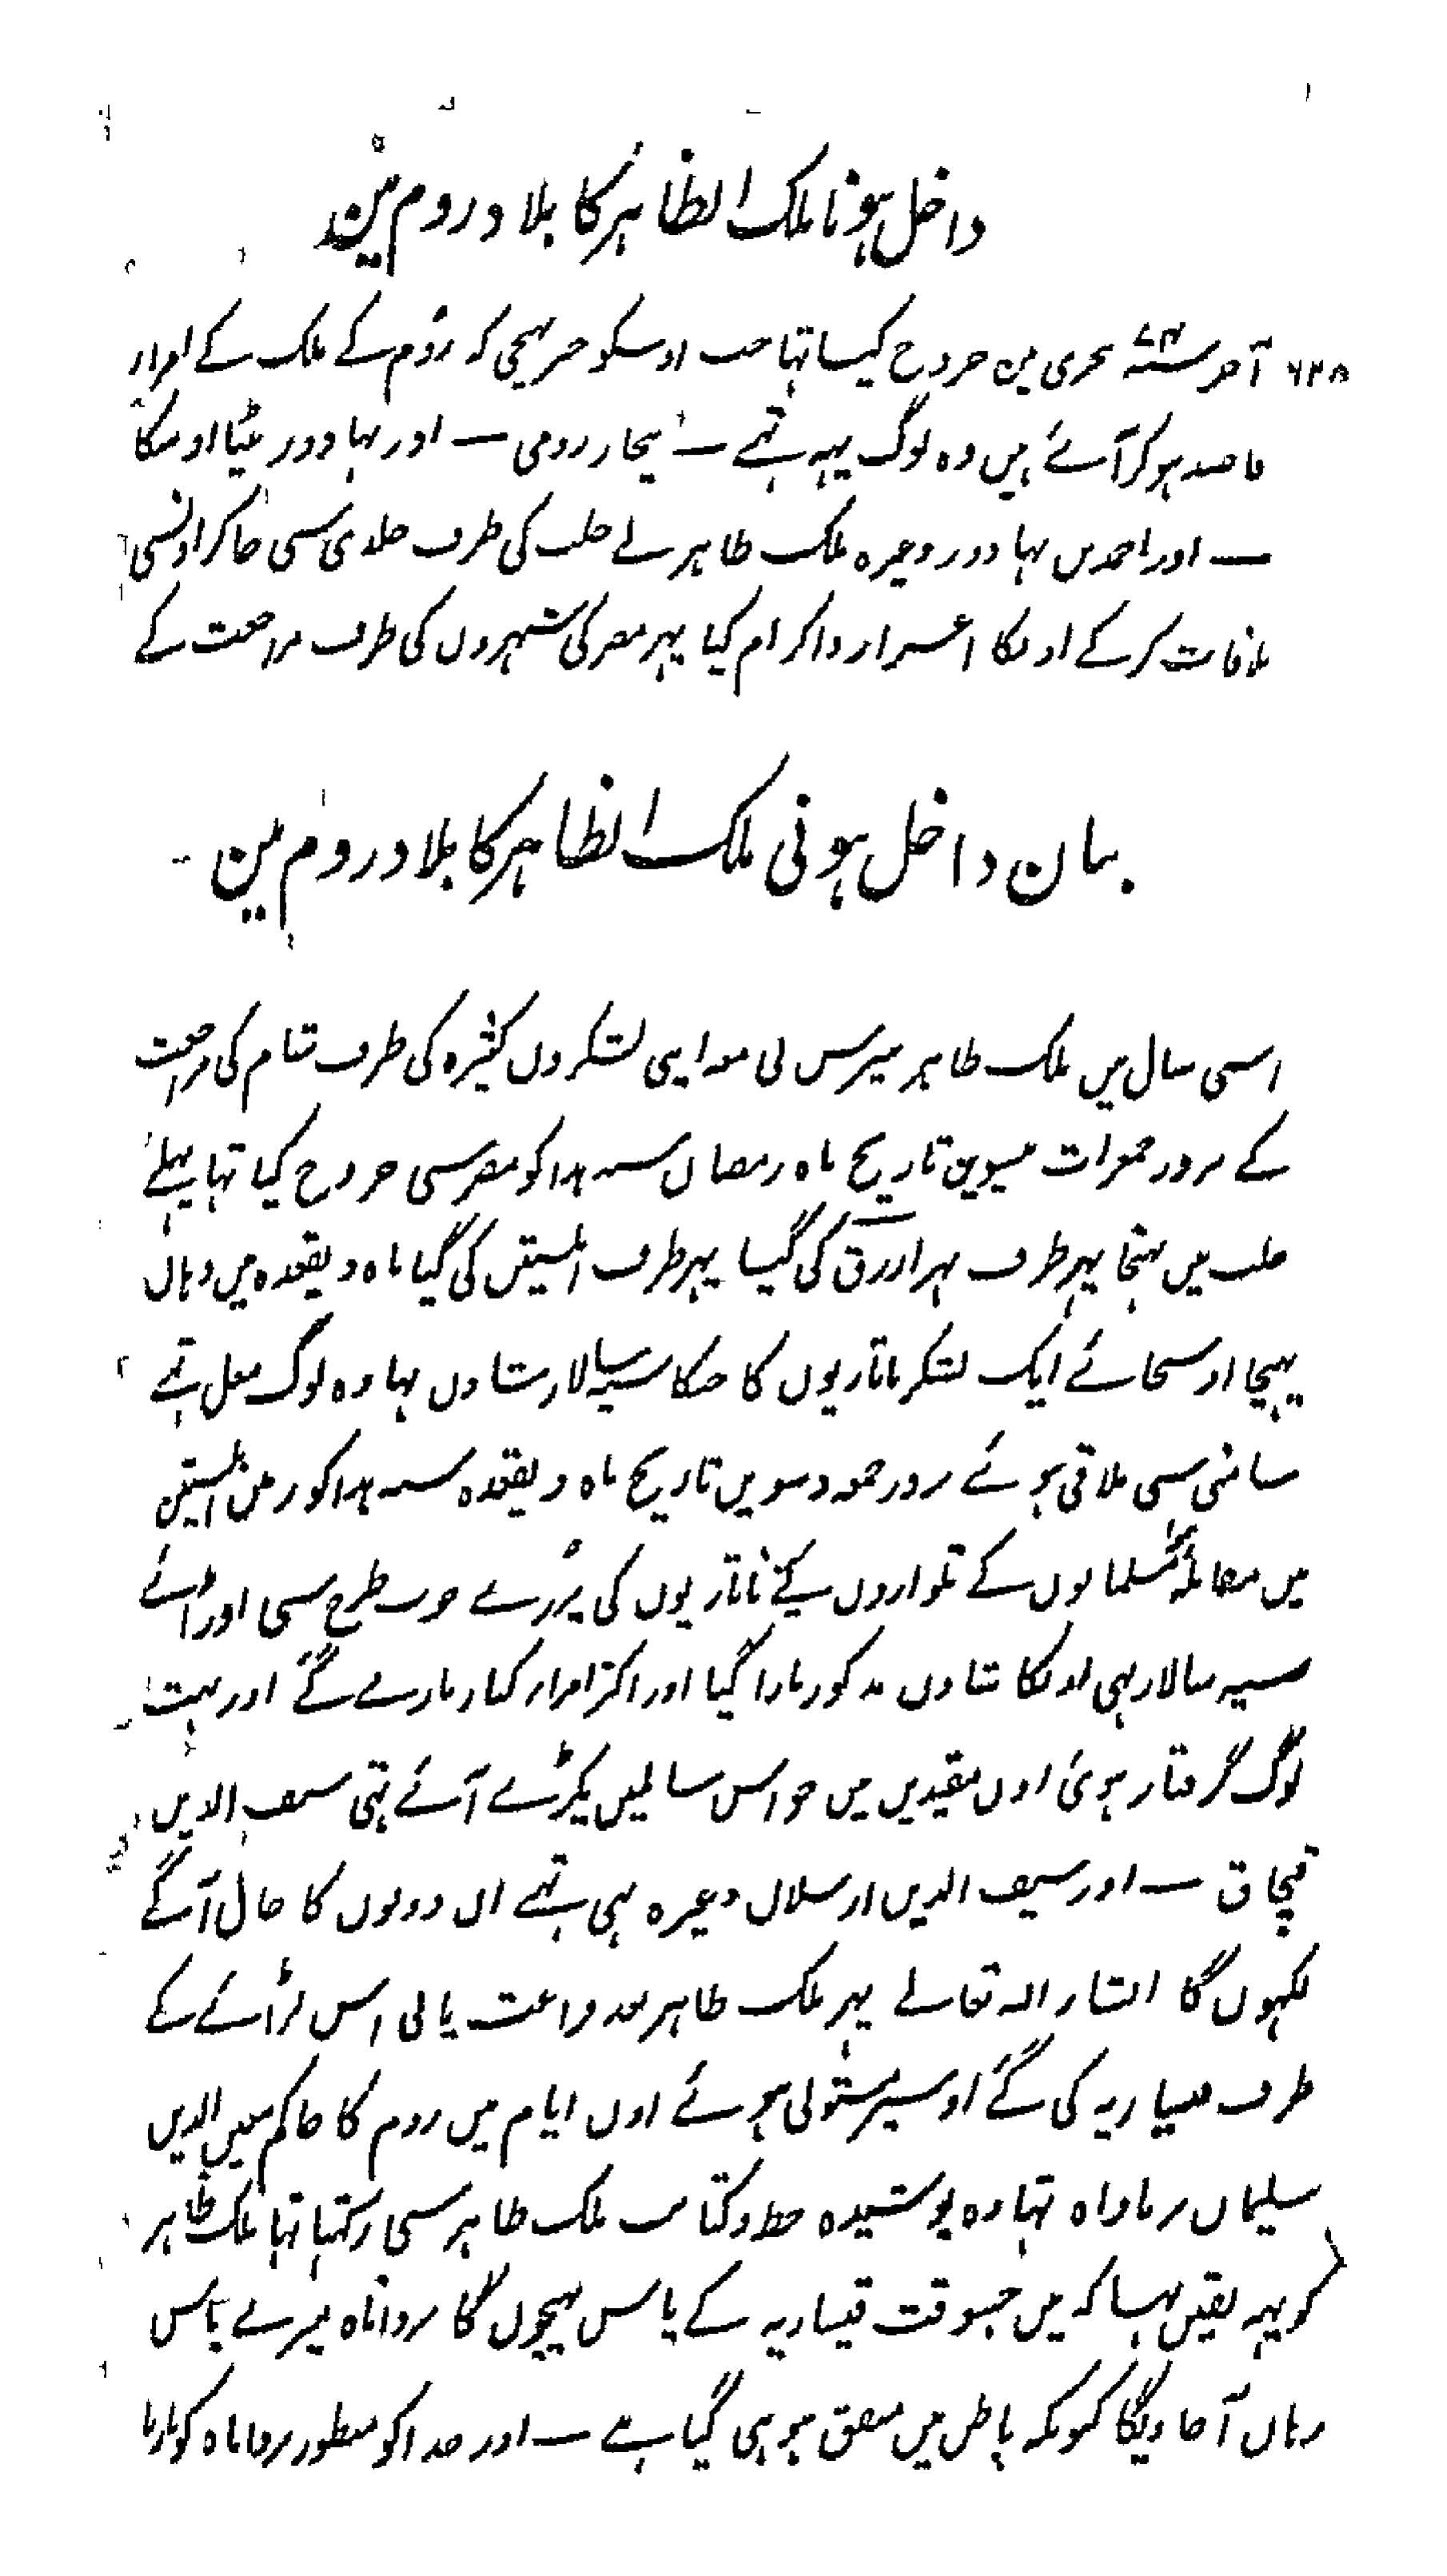 داخل ہونا ملک الظاہر کا بلاد روم مین
۶۲۸ آخر سنہ ہجری مین خروج کیا تہا جب اوسکو خبر پہنچی کہ روم کے ملک کے امرار
قاصد ہو کر آئے ہیں وہ لوگ یہہ تہے — بیجار رومی — اور بہادور بیٹا اوسکا
— اور احمد بن بہادور وغیرہ ملک ظاہر نے حلب کی طرف جلدی سی جا کر اونسی
ملاقات کر کے اونکا اعزار و اکرام کیا پہر مصر کی شہروں کی طرف مراجعت کے
بیان داخل ہونی ملک الظاہر کا بلاد روم مین -
اسی سال میں ملک ظاہر بیبرس نی معہ اپنی لشکروں کثیرہ کی طرف شام کی مراجعت
کے بروز جمعرات بیسوین تاریخ ماہ رمضان سنہ ہذا کو مصر سی خروج کیا تہا پہلے
حلب میں پہنچا پہر طرف نہر ازرق کی گیا پہر طرف ابلستین کی گیا ماہ ذیقعدہ میں وہاں
پہنچا اوسجائے ایک لشکر تاتاریوں کا جسکا سپہ سالار تناون تہا وہ لوگ مغل تہے
سامنی سی ملاقی ہوئے روز جمعہ دسویں تاریخ ماہ ذیقعدہ سنہ ہذا کو ارض ابلستین
میں مسلمانوں کے تلواروں نے تاتاریوں کی پرزے خوب طرح سی اوڑائے
سپہ سالار بہی اونکا تناون مذکور مارا گیا اور اکثر امرار کبار مارے گئے اور بہت
لوگ گرفتار ہوئ اون مقیدیں میں جو اس سالمیں پکڑے آئے تہی سیف الدین
قبچاق — اور سیف الدین ارسلان وغیرہ بہی تہے ان دونوں کا حال آگے
لکہوں گا انشار اللہ تعالے پہر ملک ظاہر بعد فراغت پانی اس لڑائے کے
طرف قیساریہ کی گئے اوسپر مستولی ہوئے اون ایام میں روم کا حاکم معین الدین
سلیمان برواناہ تہا وہ پوشیدہ خط و کتابت ملک ظاہر سی رکہتا تہا ملک ظاہر
کو یہہ یقین تہا کہ میں جسوقت قیساریہ کے پاس پہنچوں گا برواناہ میرے پاس
وہاں آجاویگا کیونکہ باطن میں متفق ہو ہی گیا ہے — اور خدا کو منظور برواناہ کو مارنا